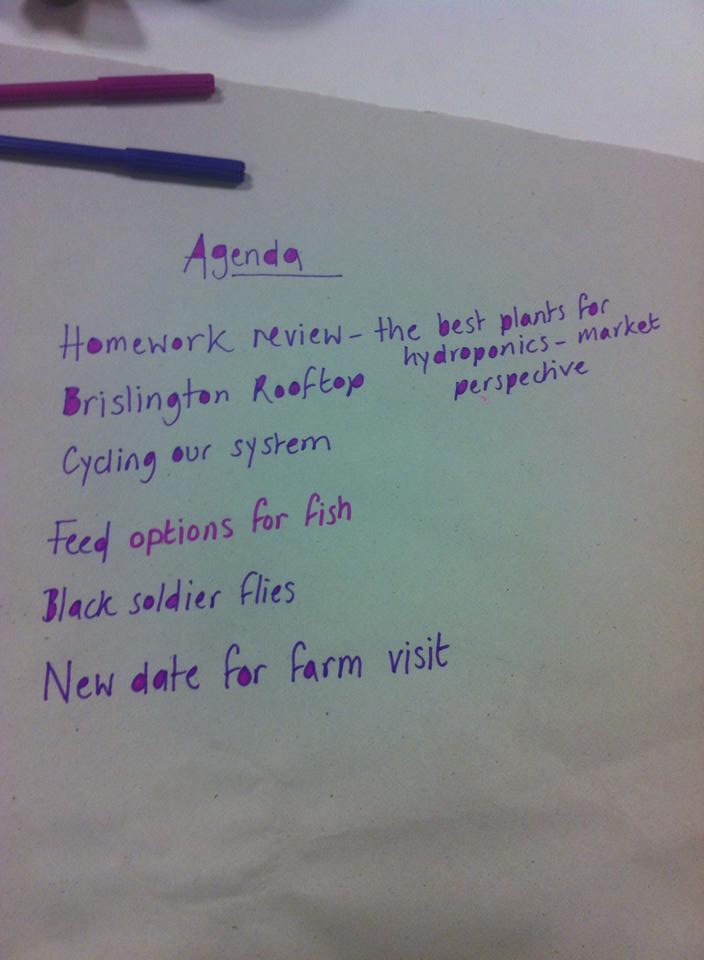 Agenda
Homework review - the best plants for
hydroponics - market
perspective
Brislington Rooftop
Cycling our system
Feed options for fish
Black soldier flies
New date for farm visit